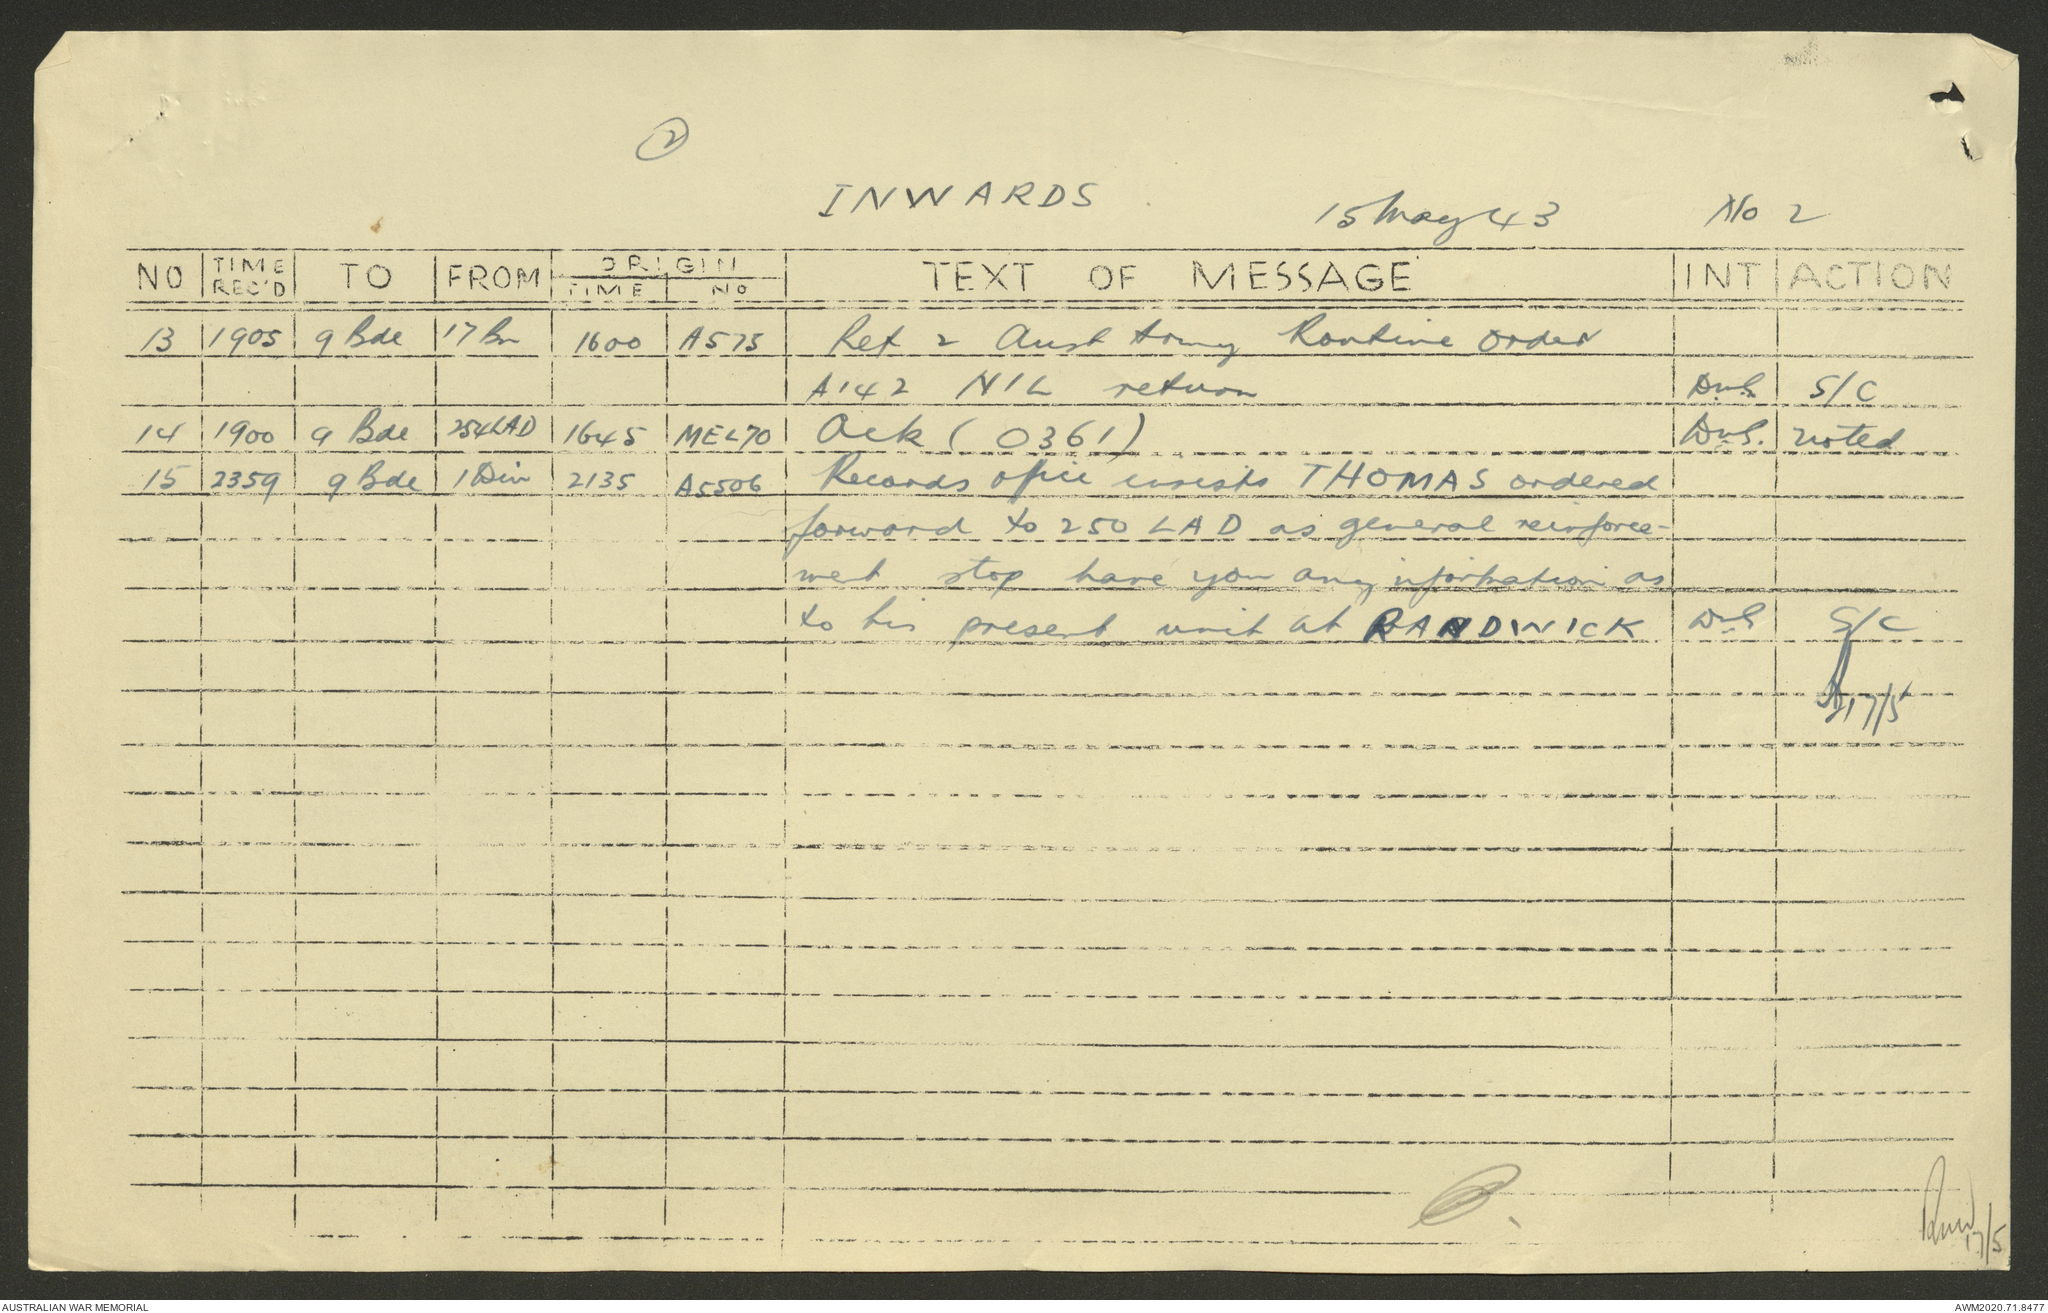 2
INWARDS 15 May 43 No 2
NO TIME REC'D TO FROM ORIGIN TIME No TEXT OF MESSAGE INT ACTION
13 1905 9 Bde 17 Bn 1600 A575 Ref 2 Aust Army Routine Order
A142 NIL return S/C
14 1900 9 Bde 254 LAD 1645 MEL70 Ack (0361) noted
15 2359 9 Bde 1 Div 2135 A5506 Records office insists THOMAS ordered
forward to 250 LAD as general reinforce-
ment stop have you any information as
to his present unit at RANDWICK S/C
17/5
17/5
AUSTRALIAN WAR MEMORIAL AWM2020.71.8477